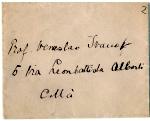 2
Prof Venceslao Ivanof
5 Via Leonbattista Alberti
Città